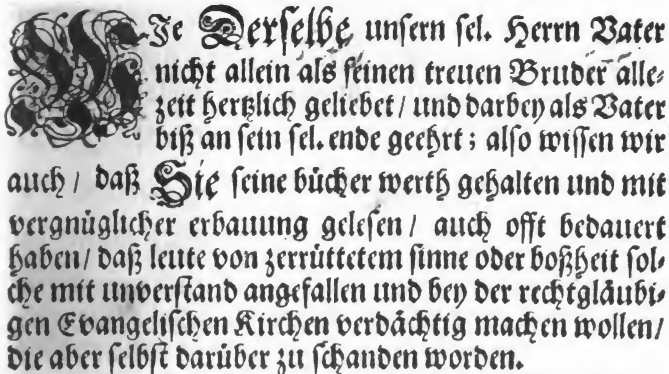 WJe Derselbe unsern sel. Herrn Vater
nicht allein als seinen treuen Bruder alle-
zeit hertzlich geliebet / und darbey als Vater
biß an sein sel. ende geehrt; also wissen wir
auch / daß Sie seine bücher werth gehalten und mit
vergnüglicher erbauung gelesen / auch offt bedauert
haben / daß leute von zerrüttetem sinne oder boßheit sol-
che mit unverstand angefallen und bey der rechtgläubi-
gen Evangelischen Kirchen verdächtig machen wollen /
die aber selbst darüber zu schanden worden.